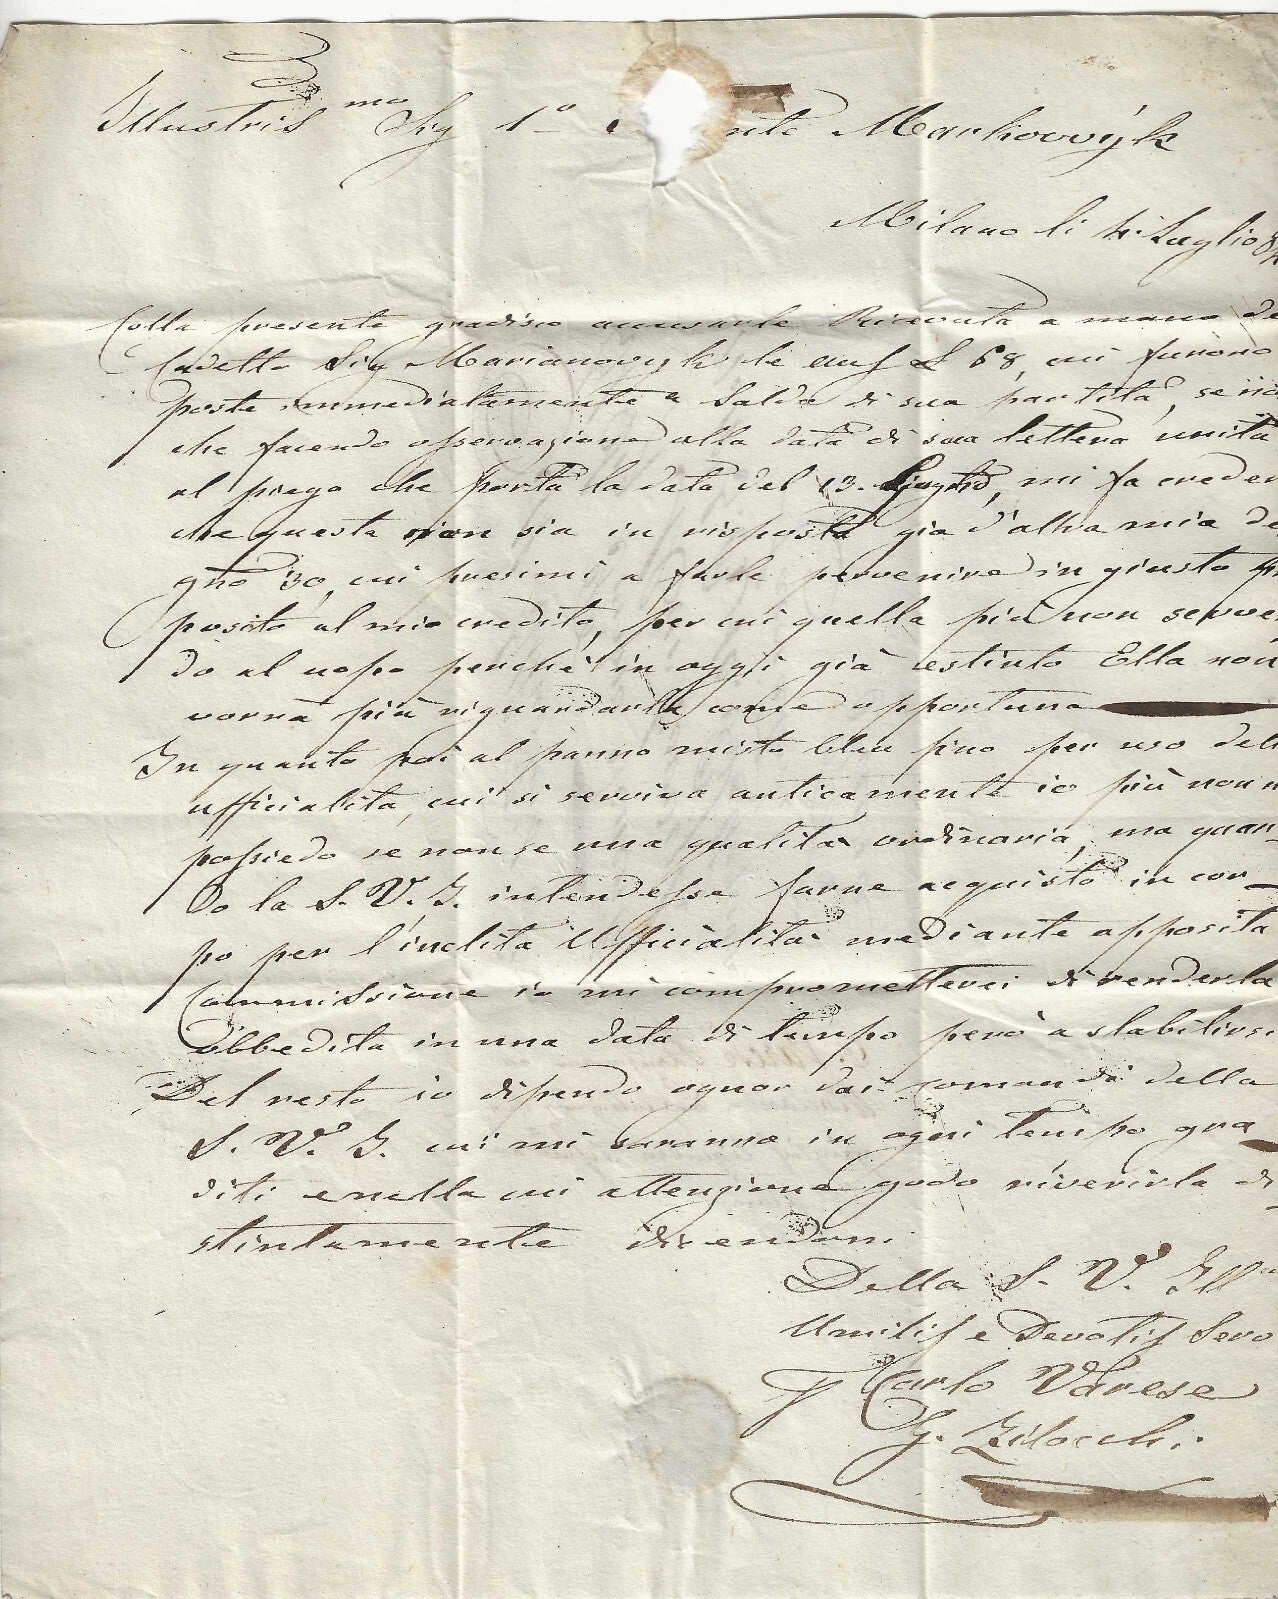 Illustris.mo Sig 1º nte Markovvÿk
Milano li 4 Luglio
Colla presente gradisco accusarle Ricevuta a mano de
Cadetto Sig Marianovyk le aus L 68, cui furono
poste immediatamente a Saldo di sua partita, se no
che facendo osservazione alla data di sua lettera unita
al piego che porta la data del 13. Giugno, mi fa creder
che questa non sia in risposta già d'altra mia de
gno 30, cui presimi a farle pervenire in giusto p
posito al mio credito, per cui quella più non serven
do al uopo perchè in oggi già estinto Ella non
vorrà più riguardarla come opportuna
In quanto poi al panno misto bleu fino per uso dell
ufficialità, cui si serviva anticamente io più non n
possiedo se non se una qualità ordinaria, ma quan-
do la S. V. I. intendesse farne acquisto in cor-
po per l'inclita Ufficialità mediante apposita
Commissione io mi comprometterei di renderla
obbedita in una data di tempo però a stabilirsi
Del resto io dipendo ognor dai comandi della
S. V. I. cui mi saranno in ogni tempo gra
diti e nella cui attenzione godo riverirla di
stintamente dicendomi
Della S. V. Ill
Umilis e Devotis Servo
Carlo Varese
G. Zilocchi